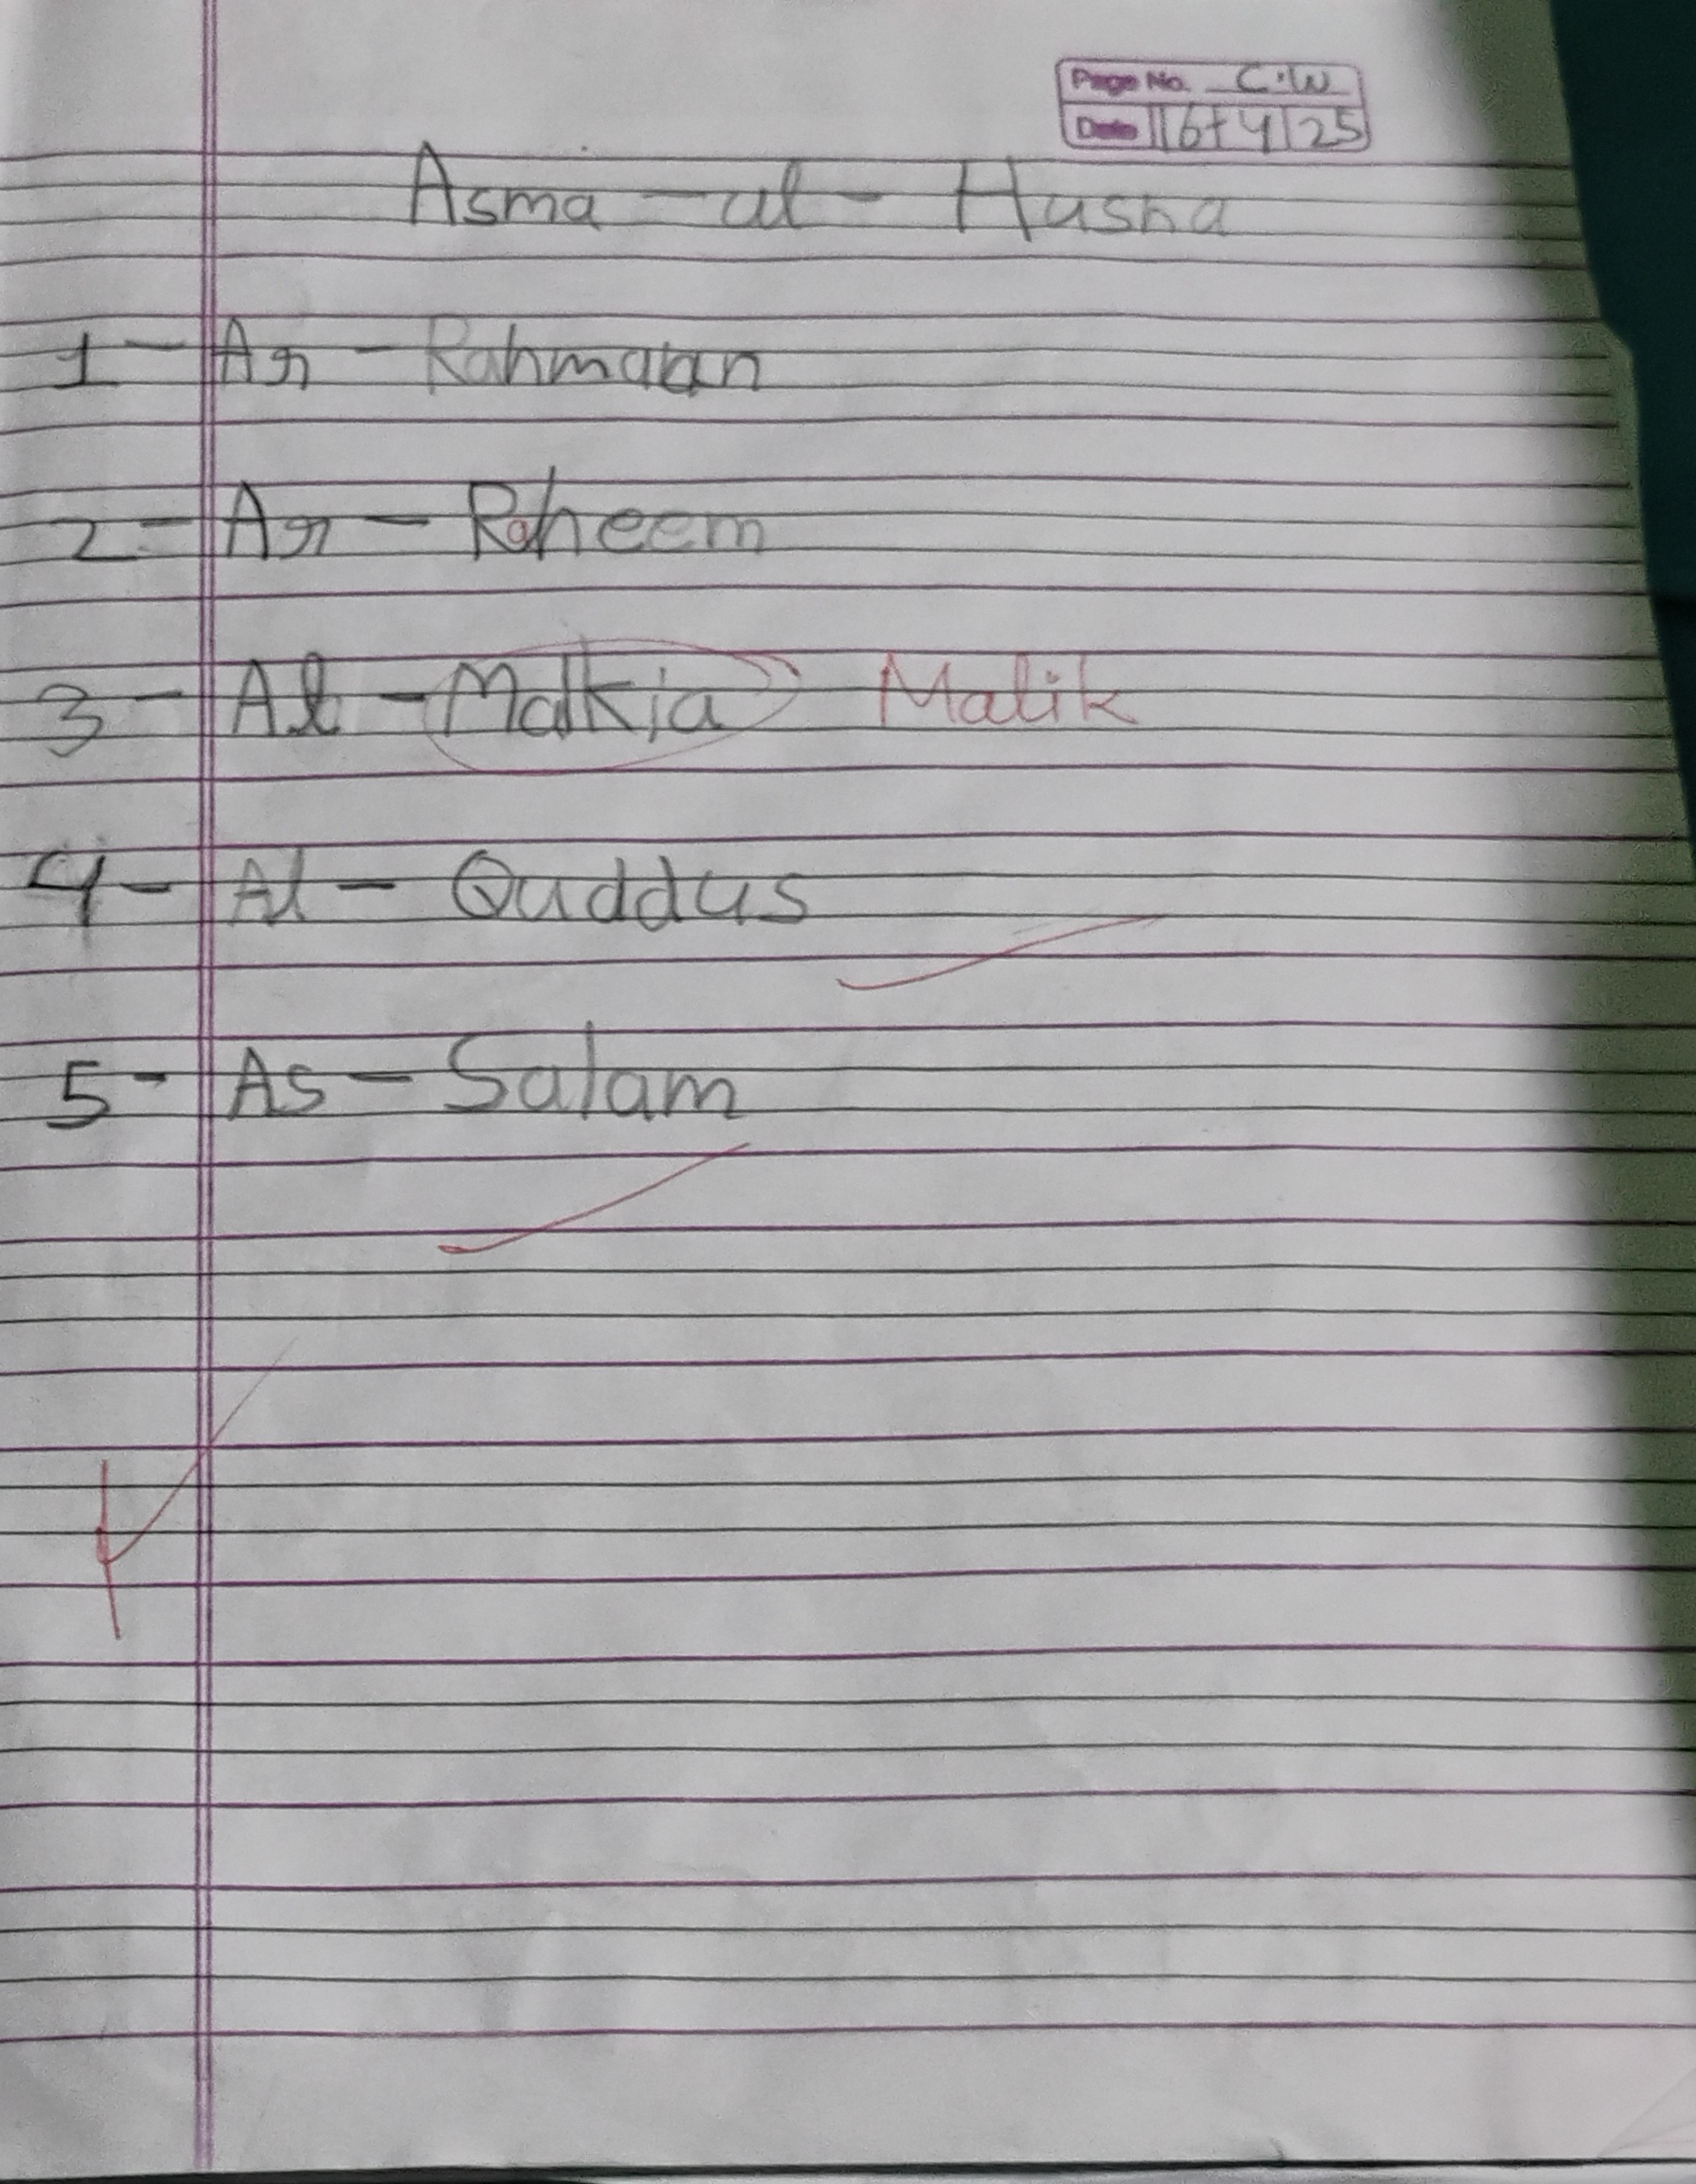 Page No. C.W
Date 16/4/25
Asma-al-Husna
1- Ar-Rahmaan
2- Ar-Raheem
3- Al-Malkia Malik
4- Al-Quddus
5- As-Salam